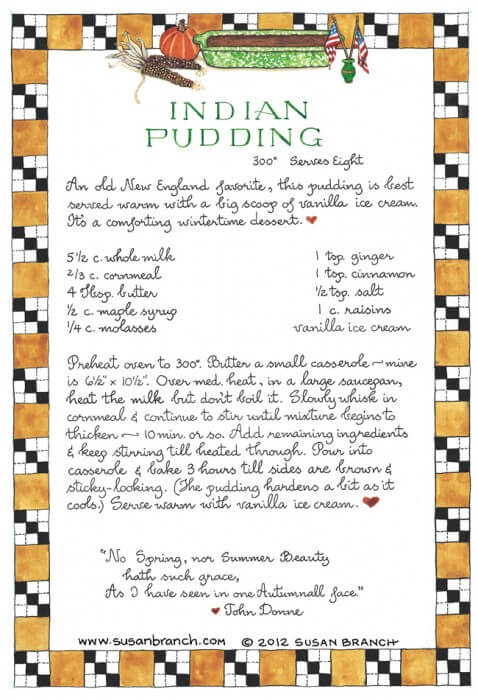 INDIAN
PUDDING
300° Serves Eight
An old New England favorite, this pudding is best
served warm with a big scoop of vanilla ice cream.
It's a comforting wintertime dessert. ♥
5 1/2 c. whole milk
2/3 c. cornmeal
4 Tbsp. butter
1/2 c. maple syrup
1/4 c. molasses
1 tsp. ginger
1 tsp. cinnamon
1/2 tsp. salt
1 c. raisins
vanilla ice cream
Preheat oven to 300°. Butter a small casserole ~ mine
is 6 1/2" x 10 1/2". Over med. heat, in a large saucepan,
heat the milk but don't boil it. Slowly whisk in
cornmeal & continue to stir until mixture begins to
thicken ~ 10 min. or so. Add remaining ingredients
& keep stirring till heated through. Pour into
casserole & bake 3 hours till sides are brown &
sticky-looking. (The pudding hardens a bit as it
cools.) Serve warm with vanilla ice cream. ♥
"No Spring, nor Summer Beauty
hath such grace,
As I have seen in one Autumnall face."
♥ John Donne
www.susanbranch.com © 2012 SUSAN BRANCH